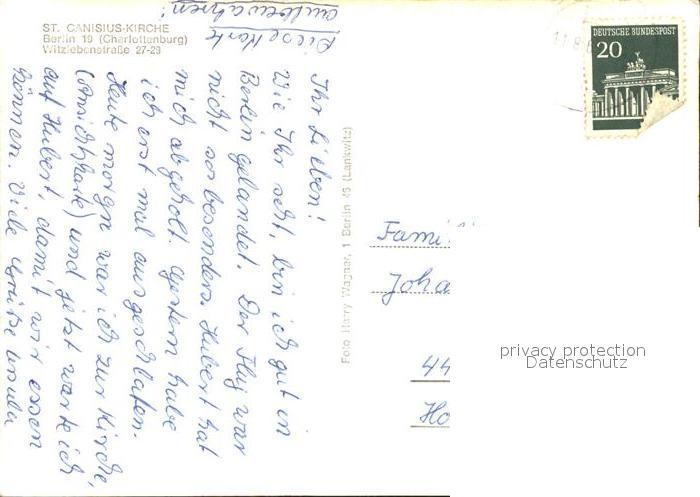 ST. CANISIUS-KIRCHE
Berlin 19 (Charlottenburg)
Witzlebenstraße 27-29
Diese Karte
aufbewahren!
Ihr Lieben!
Wie Ihr seht, bin ich gut in
Berlin gelandet. Der Flug war
nicht so besonders. Hubert hat
mich abgeholt. Gestern habe
ich erst mal ausgeschlafen.
Heute morgen war ich zur Kirche,
(Ansichtskarte) und jetzt warte ich
auf Hubert, damit wir essen
können. Viele Grüße Ursula
Foto Harry Wagner, 1 Berlin 46 (Lankwitz)
DEUTSCHE BUNDESPOST
20
Fami
Joha
44
Ho
privacy protection
Datenschutz